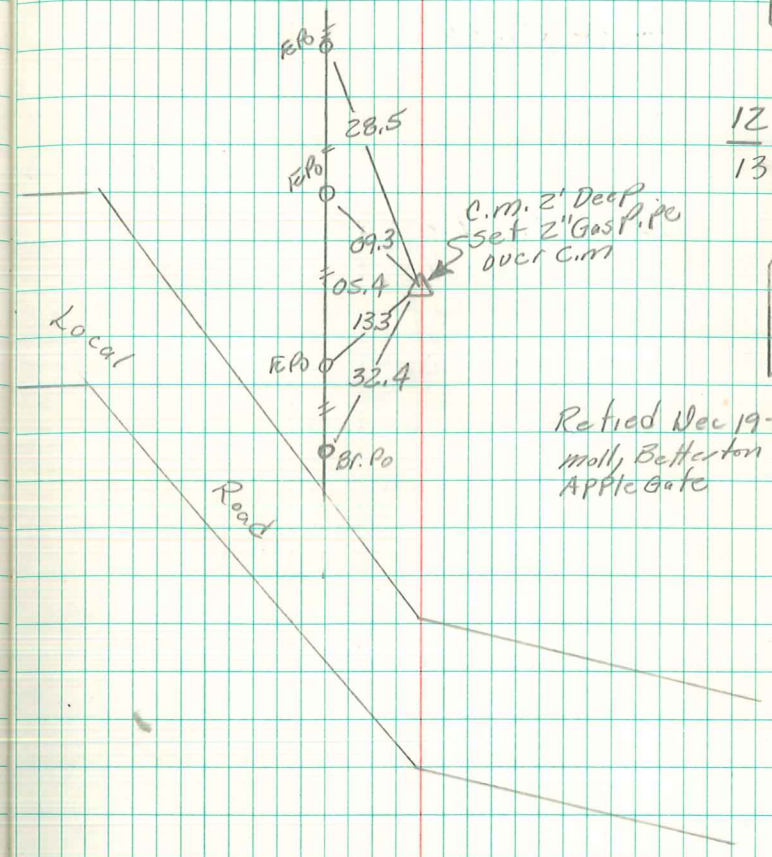 FePo
28.5
12
13
FePo
C.M. 2' Deep
Set 2" Gas Pipe
over C.M
09.3
05.4
133
FePo
32.4
Br.Po
Local
Road
Retied Dec 19-
Moll, Betterton
AppleGate